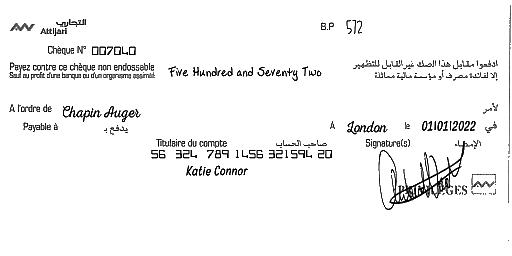 التجاري
Attijari
B.P 572
Chèque N° 007040
Payez contre ce chèque non endossable
Sauf au profit d'une banque ou d'un organisme assimilé
Five Hundred and Seventy Two
ادفعوا مقابل هذا الصك غير القابل للتظهير
إلا لفائدة مصرف أو مؤسسة مالية مماثلة
A l'ordre de Chapin Auger لأمر
Payable à يدفع بـ
A London le 01/01/2022 في
Titulaire du compte صاحب الحساب
Signature(s) الإمضاء
56 324 789 1456 321594 20
Katie Connor
PRIVILEGES